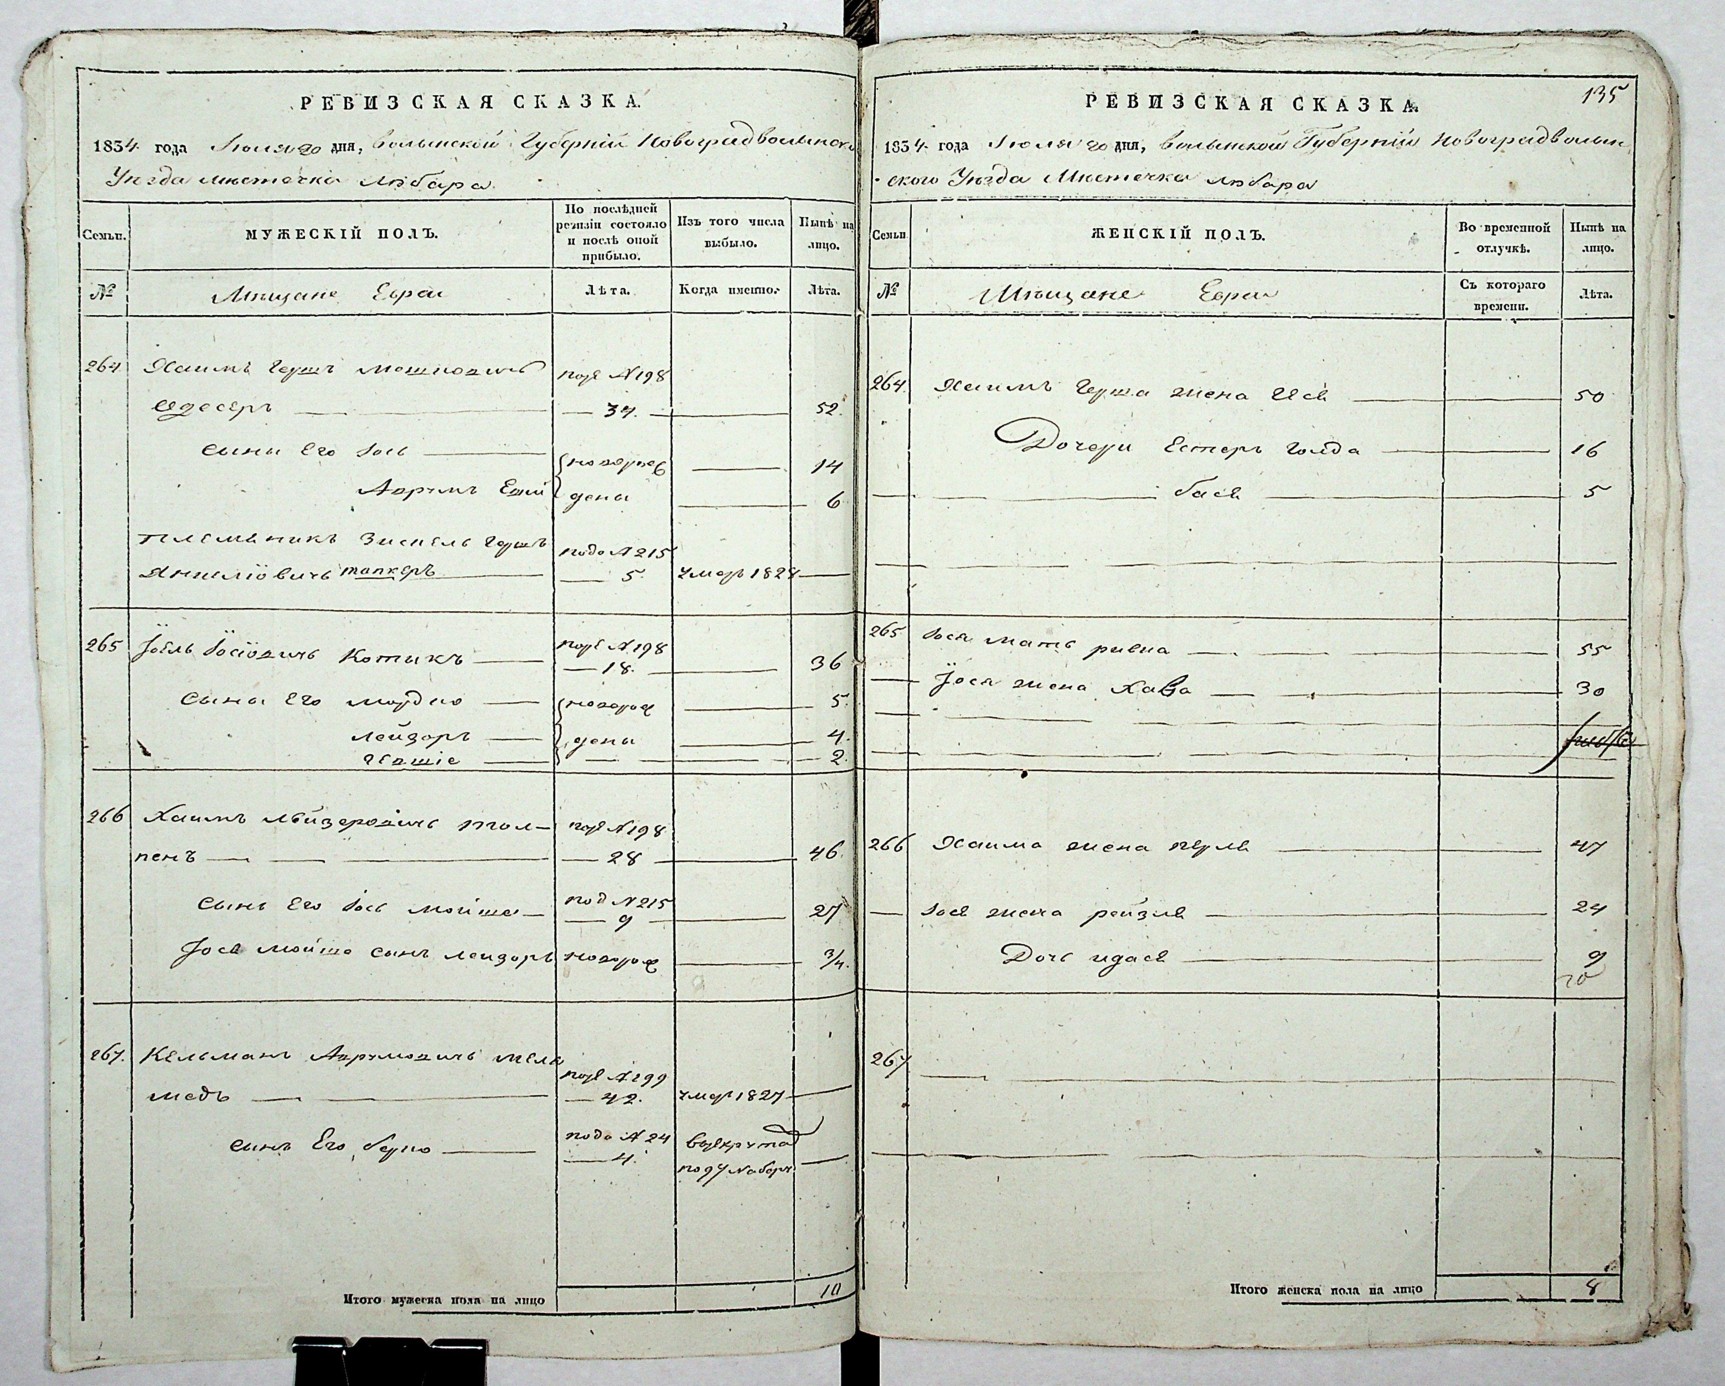 РЕВИЗСКАЯ СКАЗКА.
1834 года Июля 20 дня, Волынской Губерніи Новоградволынск
Уезда Местечка Любара
Семьи. МУЖЕСКІЙ ПОЛЪ. По послѣдней ревизіи состояло и послѣ оной прибыло. Изъ того числа выбыло. Нынѣ на лицо.
№ Мещане Евреи Лѣта. Когда именно. Лѣта.
264 Хаимъ Гершъ Мошковичъ под №198
34. 52.
сыны Его Іось новорож 14
Аврумъ дены 6
племяникъ Гершъ подо №215
Янкилiовичъ 5. умер 1828
265 Іосиовичъ Котыкъ под №198
18. 36
сыны Его Мордко новорож 5.
Лейзоръ дены 4.
2.
266 Хаимъ Лейзеровичъ тол- под №198
пенъ 28 46.
сынъ Его Іось Мойше под №215
9 27
Іося Мойше сынъ Лейзоръ новорож 3/4.
267. Кельманъ Аврумовичъ Мела под №199
медъ 42. умер 1827
сынъ Его Берко подо №24
4. по 97 набору
Итого мужеска пола на лицо 10
РЕВИЗСКАЯ СКАЗКА. 135
1834 года Июля 20 дня, Волынской Губерніи Новоградволын
ского Уезда Местечка Любара
Семьи ЖЕНСКІЙ ПОЛЪ. Во временной отлучкѣ. Нынѣ на лицо.
№ Мещане Евреи Съ котораго времени. Лѣта.
264. Хаимъ Герша жена 50
Дочери Естеръ Голда 16
Бася 5
265 мать Ривка 55
жена Хава 30
266 Хаима жена Перля 47
Іося жена Рейзля 24
Дочь 9
20
267
Итого женска пола на лицо 8